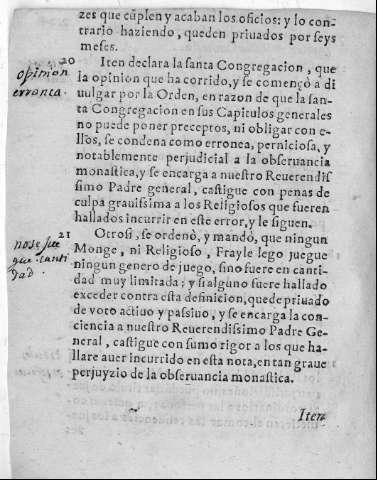 zes que cũplen y acaban los oficios: y lo con-
trario haziendo, queden priuados por seys
meses.
20
Iten declara la santa Congregacion, que
opinion
la opinion que ha corrido, y se començò a di
erronea.
uulgar por la Orden, en razon de que la san-
ta Congregacion en sus Capitulos generales
no puede poner preceptos, ni obligar con e-
llos, se condena como erronea, perniciosa, y
notablemente perjudicial a la obseruancia
monastica, y se encarga a nuestro Reuerendis
simo Padre general, castigue con penas de
culpa grauissima a los Religiosos que fueren
hallados incurrir en este error, y le siguen.
21
Otrosi, se ordenò, y mandò, que ningun
no se jue
Monge, ni Religioso, Frayle lego juegue
gue canti
ningun genero de juego, sino fuere en canti-
dad.
dad muy limitada; y si alguno fuere hallado
exceder contra esta definicion, quede priuado
de voto actiuo y passiuo, y se encarga la con-
ciencia a nuestro Reuerendissimo Padre Ge-
neral, castigue con sumo rigor a los que ha-
llare auer incurrido en esta nota, en tan graue
perjuyzio de la obseruancia monastica.
Iten